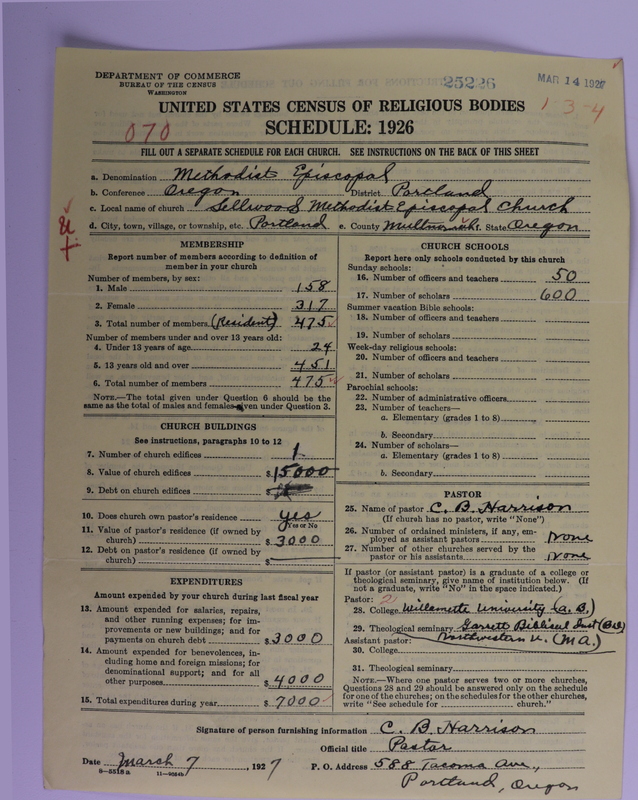 DEPARTMENT OF COMMERCE
BUREAU OF THE CENSUS
WASHINGTON
25226
MAR 14 1927
1-3-4
UNITED STATES CENSUS OF RELIGIOUS BODIES
070
SCHEDULE: 1926
FILL OUT A SEPARATE SCHEDULE FOR EACH CHURCH. SEE INSTRUCTIONS ON THE BACK OF THIS SHEET
a. Denomination Methodist Episcopal
b. Conference Oregon District Portland
c. Local name of church Sellwood Methodist Episcopal Church
d. City, town, village, or township, etc. Portland e. County Multnomah f. State Oregon
MEMBERSHIP
Report number of members according to definition of
member in your church
Number of members, by sex:
1. Male 158
2. Female 317
3. Total number of members (Resident) 475
Number of members under and over 13 years old:
4. Under 13 years of age 24
5. 13 years old and over 451
6. Total number of members 475
NOTE.—The total given under Question 6 should be
same as the total of males and females given under Question 3.
CHURCH BUILDINGS
See instructions, paragraphs 10 to 12
7. Number of church edifices 1
8. Value of church edifices $15000
9. Debt on church edifices $
10. Does church own pastor's residence yes
Yes or No
11. Value of pastor's residence (if owned by
church) $3000
12. Debt on pastor's residence (if owned by
church) $
EXPENDITURES
Amount expended by your church during last fiscal year
13. Amount expended for salaries, repairs,
and other running expenses; for im-
provements or new buildings; and for
payments on church debt $3000
14. Amount expended for benevolences, in-
cluding home and foreign missions; for
denominational support; and for all
other purposes $4000
15. Total expenditures during year $7000
CHURCH SCHOOLS
Report here only schools conducted by this church
Sunday schools:
16. Number of officers and teachers 50
17. Number of scholars 600
Summer vacation Bible schools:
18. Number of officers and teachers
19. Number of scholars
Week-day religious schools:
20. Number of officers and teachers
21. Number of scholars
Parochial schools:
22. Number of administrative officers
23. Number of teachers—
a. Elementary (grades 1 to 8)
b. Secondary
24. Number of scholars—
a. Elementary (grades 1 to 8)
b. Secondary
PASTOR
25. Name of pastor C. B. Harrison
(If church has no pastor, write "None")
26. Number of ordained ministers, if any, em-
ployed as assistant pastors None
27. Number of other churches served by the
pastor or his assistants None
If pastor (or assistant pastor) is a graduate of a college or
theological seminary, give name of institution below. (If
not a graduate, write "No" in the space indicated.)
Pastor: 2
28. College Willamette University (A. B.)
29. Theological seminary Garrett Biblical Inst (B.D)
Assistant pastor: Northwestern U. (M A.)
30. College
31. Theological seminary
NOTE.—Where one pastor serves two or more churches,
Questions 28 and 29 should be answered only on the schedule
for one of the churches; on the schedules for the other churches,
write "See schedule for church."
Signature of person furnishing information C. B. Harrison
Official title Pastor
Date March 7, 1927 P. O. Address 588 Tacoma Ave.,
8—5518 a 11—9054b
Portland, Oregon